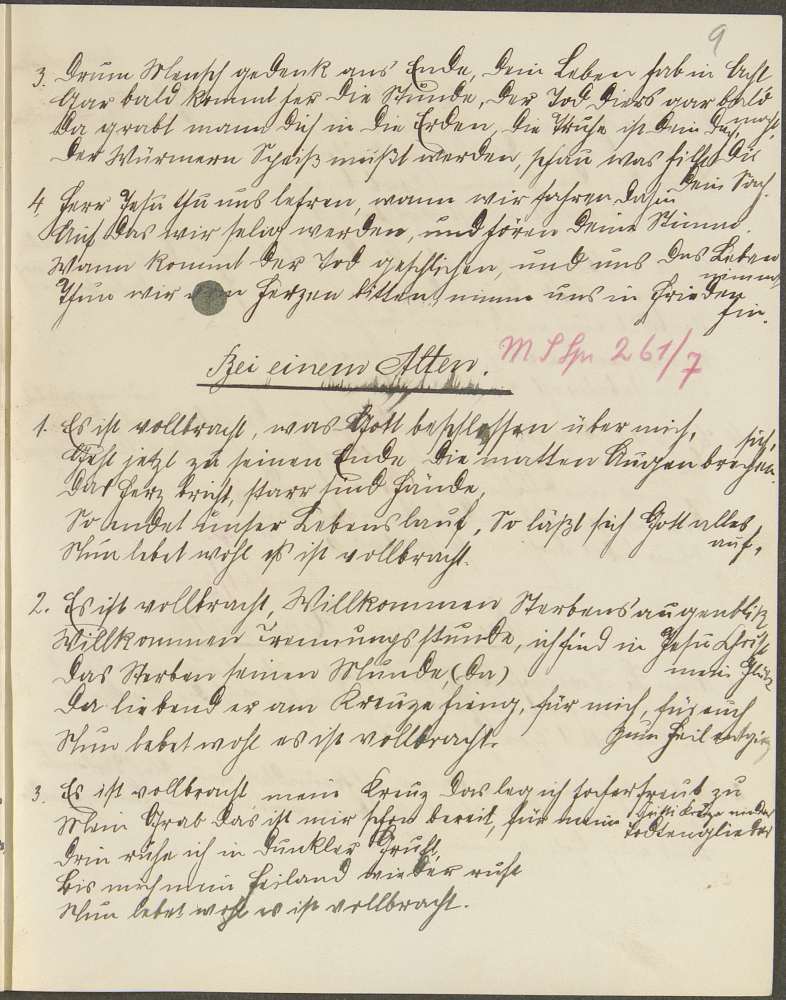 9
3. Drum Mensch gedenk ans Ende, dein Leben hab in Acht
Gar bald kommt her die Stunde, der Tod dirs gar bald
macht,
Da grabt mann dich in die Erden, die Truhe ist dein
Der Würmern Speiß mußt werden, schau was hilft dir
dein Sach.
4. Herr Jesu thu uns lehren, wann wir fahren dahin
Auf das wir selig werden, und hören deine Stimm.
Wann kommt der Tod geschlichen, und uns das Leben
nimmt
Thun wir Herzen bitten, nimm uns in Frieden
hin.
Bei einem Alten. 261/7
1. Es ist vollbracht, was Gott beschlossen über mich,
Geht jetzt zu seinen Ende die matten Augen brechen
sich,
Das Herz bricht, starr sind Hände,
So endet unser Lebenslauf, So läßt sich Gott alles
auf,
Nun lebet wohl es ist vollbracht.
2. Es ist vollbracht, Willkommen Sterbensaugenblick
Willkommen Trennungsstunde, ich find in Jesu Christ
mein Glück
Das Sterben seinen Munde, (Da)
Da liebend er am Kreuze hieng, für mich, für euch
zum Heil
Nun lebet wohl es ist vollbracht.
3. Es ist vollbracht, mein Kreuz das leg ich hocherfreut zu
Mein Grab das ist mir schon bereit, für meine
Todtenglieder
Drin ruhe ich in dunkler Gruft,
Bis mich mein Heiland wieder ruft
Nun lebet wohl es ist vollbracht.